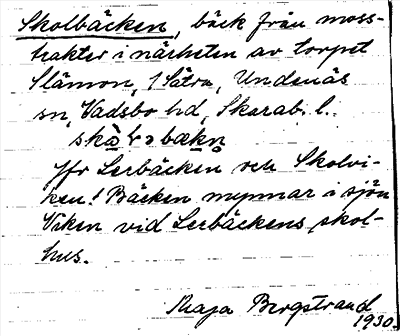 Skolbäcken, bäck från moss-
trakter i närheten av torpet
Slämon, 1 Sätra, Undenäs
sn, Vadsbo hd, Skarab. l.
Jfr Lerbäcken och Skolvi-
ken! Bäcken mynnar i sjön
Viken vid Lerbäckens skol-
hus.
Maja Bergstrand
1930.